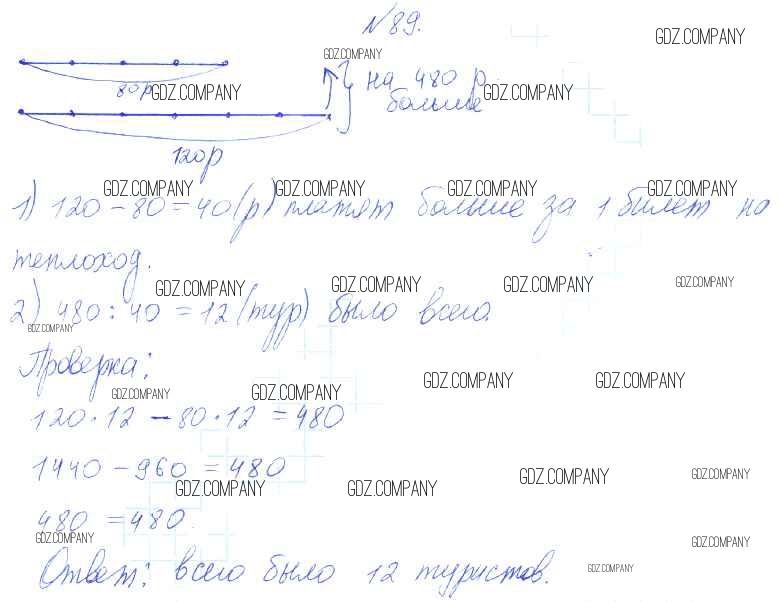 №89.
GDZ.COMPANY
GDZ.COMPANY
80р GDZ.COMPANY на 480 р GDZ.COMPANY
больше
120р
GDZ.COMPANY GDZ.COMPANY GDZ.COMPANY GDZ.COMPANY
1) 120 – 80 = 40 (р) платят больше за 1 билет на
теплоход.
GDZ.COMPANY GDZ.COMPANY GDZ.COMPANY GDZ.COMPANY
2) 480 : 40 = 12 (тур) было всего.
GDZ.COMPANY
Проверка:
GDZ.COMPANY GDZ.COMPANY GDZ.COMPANY GDZ.COMPANY
120 · 12 – 80 · 12 = 480
1440 – 960 = 480
GDZ.COMPANY GDZ.COMPANY GDZ.COMPANY GDZ.COMPANY
480 = 480.
GDZ.COMPANY GDZ.COMPANY
Ответ: всего было 12 туристов.
GDZ.COMPANY